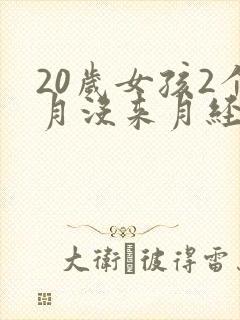 20歲女孩2个
月没来月经
大衛 彼得雷